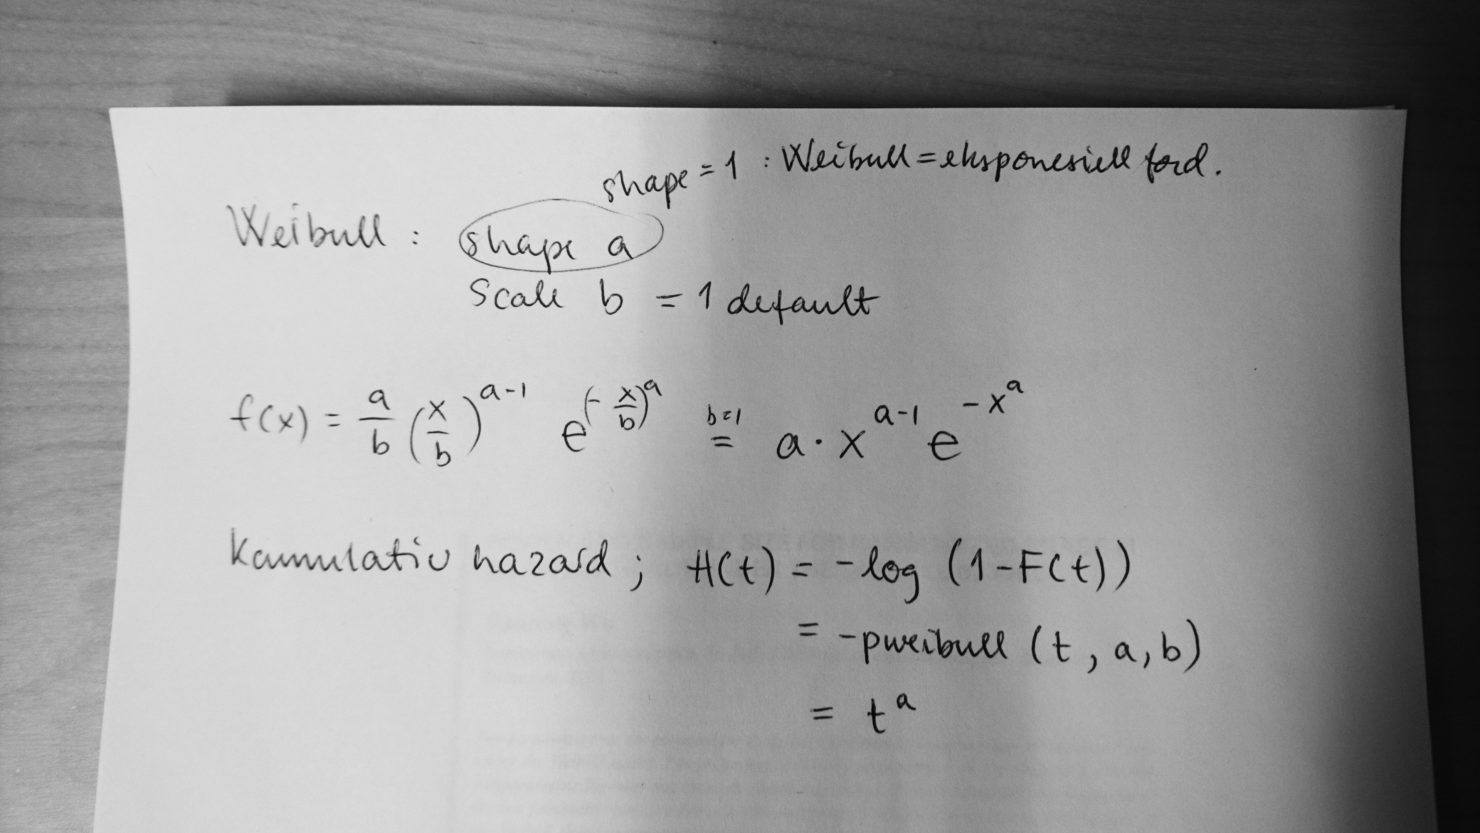 shape = 1 : Weibull = eksponesiell ford.
Weibull : shape a
Scale b = 1 default
f(x) = a/b (x/b)^(a-1) e^(-x/b)^a =^(b=1) a · x^(a-1) e^(-x^a)
Kumulativ hazard ; H(t) = -log (1-F(t))
= -pweibull (t, a, b)
= t^a